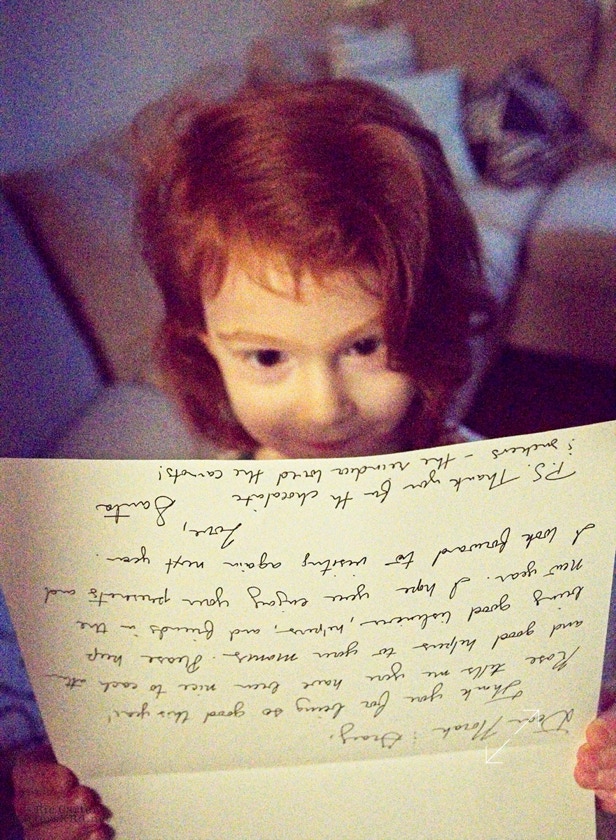 Dear Norah & Gray,
Thank you for being so good this year!
Rose tells me you have been nice to each other
and good helpers to your mamas. Please keep
being good listeners, helpers, and friends in the
new year. I hope you enjoy your presents and
I look forward to visiting again next year.
Love,
Santa
P.S. Thank you for th chocolate
& snickers - the reindeer loved the carrots!